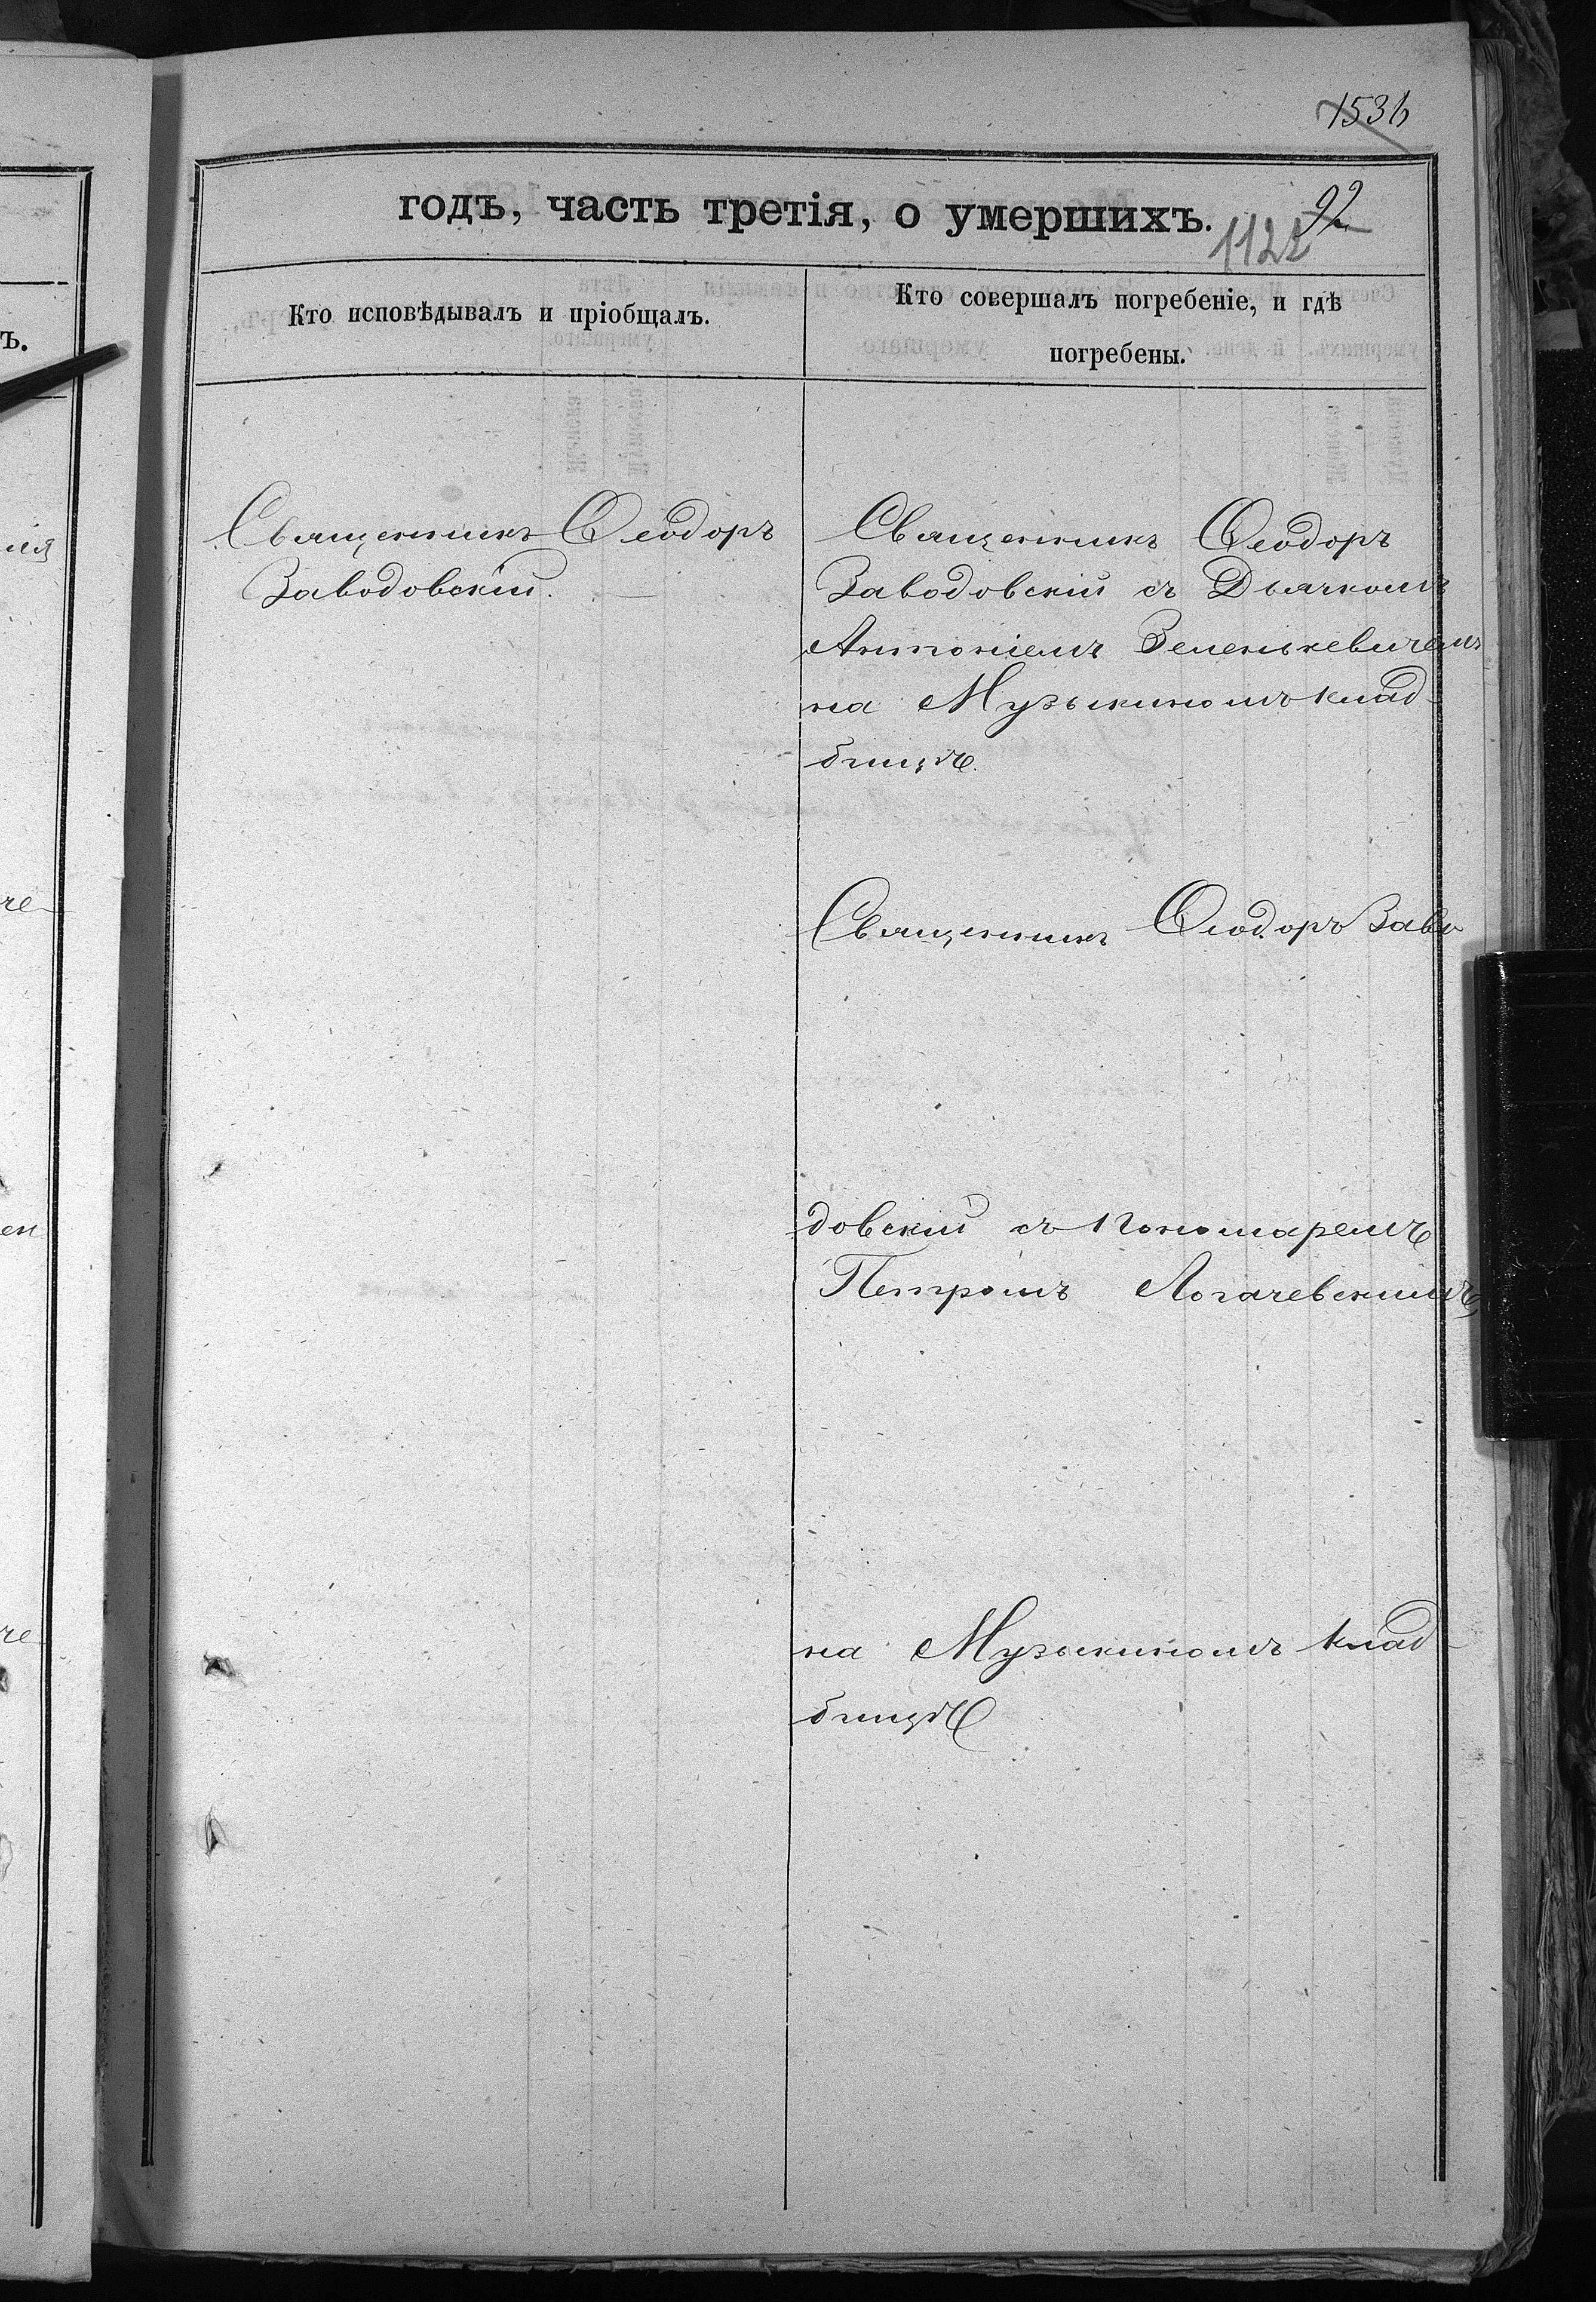 1536
годъ, часть третія, о умершихъ.
92
1122
Кто исповѣдывалъ и пріобщалъ.
Кто совершалъ погребеніе, и гдѣ
погребены.
ъ.
Священникъ Ѳеодоръ
Заводовскій.
Священникъ Ѳеодоръ
Заводовскій съ Дьячкомъ
Антоніемъ Зеленькевичемъ
на Музыкиномъ клад-
бищѣ.
Священникъ Ѳеодоръ Заво
довскій съ Пономаремъ
Петромъ Логачевскимъ,
на Музыкиномъ клад-
бищѣ